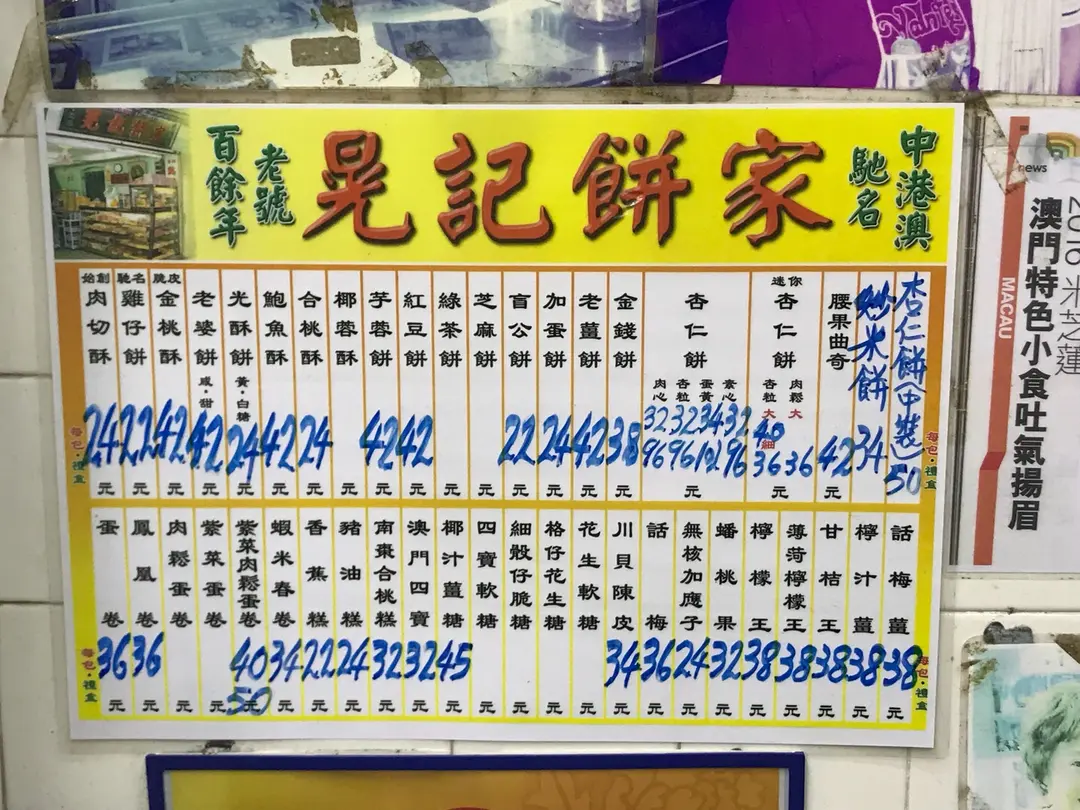 百餘年
老號
晃記餅家
馳名
中港澳
每包·禮盒
始創 肉切酥 24 元
馳名 雞仔餅 22 元
脆皮 金桃酥 42 元
老婆餅 咸·甜 42 元
光酥餅 黃·白糖 24 元
鮑魚酥 42 元
合桃酥 24 元
椰蓉酥 元
芋蓉餅 42 元
紅豆餅 42 元
綠茶餅 元
芝麻餅 元
盲公餅 22 元
加蛋餅 24 元
老薑餅 42 元
金錢餅 38 元
杏仁餅
肉心 杏粒 蛋黃 素心
32 32 34 32
96 96 102 96
元
迷你 杏仁餅
杏粒 肉鬆
大 大
40
細
36 36
元
腰果曲奇 42 元
炒米餅 34
杏仁餅(中裝) 50
每包·禮盒
每包·禮盒
蛋卷 36 元
鳳凰卷 36 元
肉鬆蛋卷 元
紫菜蛋卷 元
紫菜肉鬆蛋卷 40 50 元
蝦米春卷 34 元
香蕉糕 22 元
豬油糕 24 元
南棗合桃糕 32 元
澳門四寶 32 元
椰汁薑糖 45 元
四寶軟糖 元
細骰仔脆糖 元
格仔花生糖 元
花生軟糖 元
川貝陳皮 34 元
話梅 36 元
無核加應子 24 元
蟠桃果 32 元
檸檬王 38 元
薄荷檸檬王 38 元
甘桔王 38 元
檸汁薑 38 元
話梅薑 38 元
每包·禮盒
news
2016 米芝蓮
澳門特色小食吐氣揚眉
MACAU